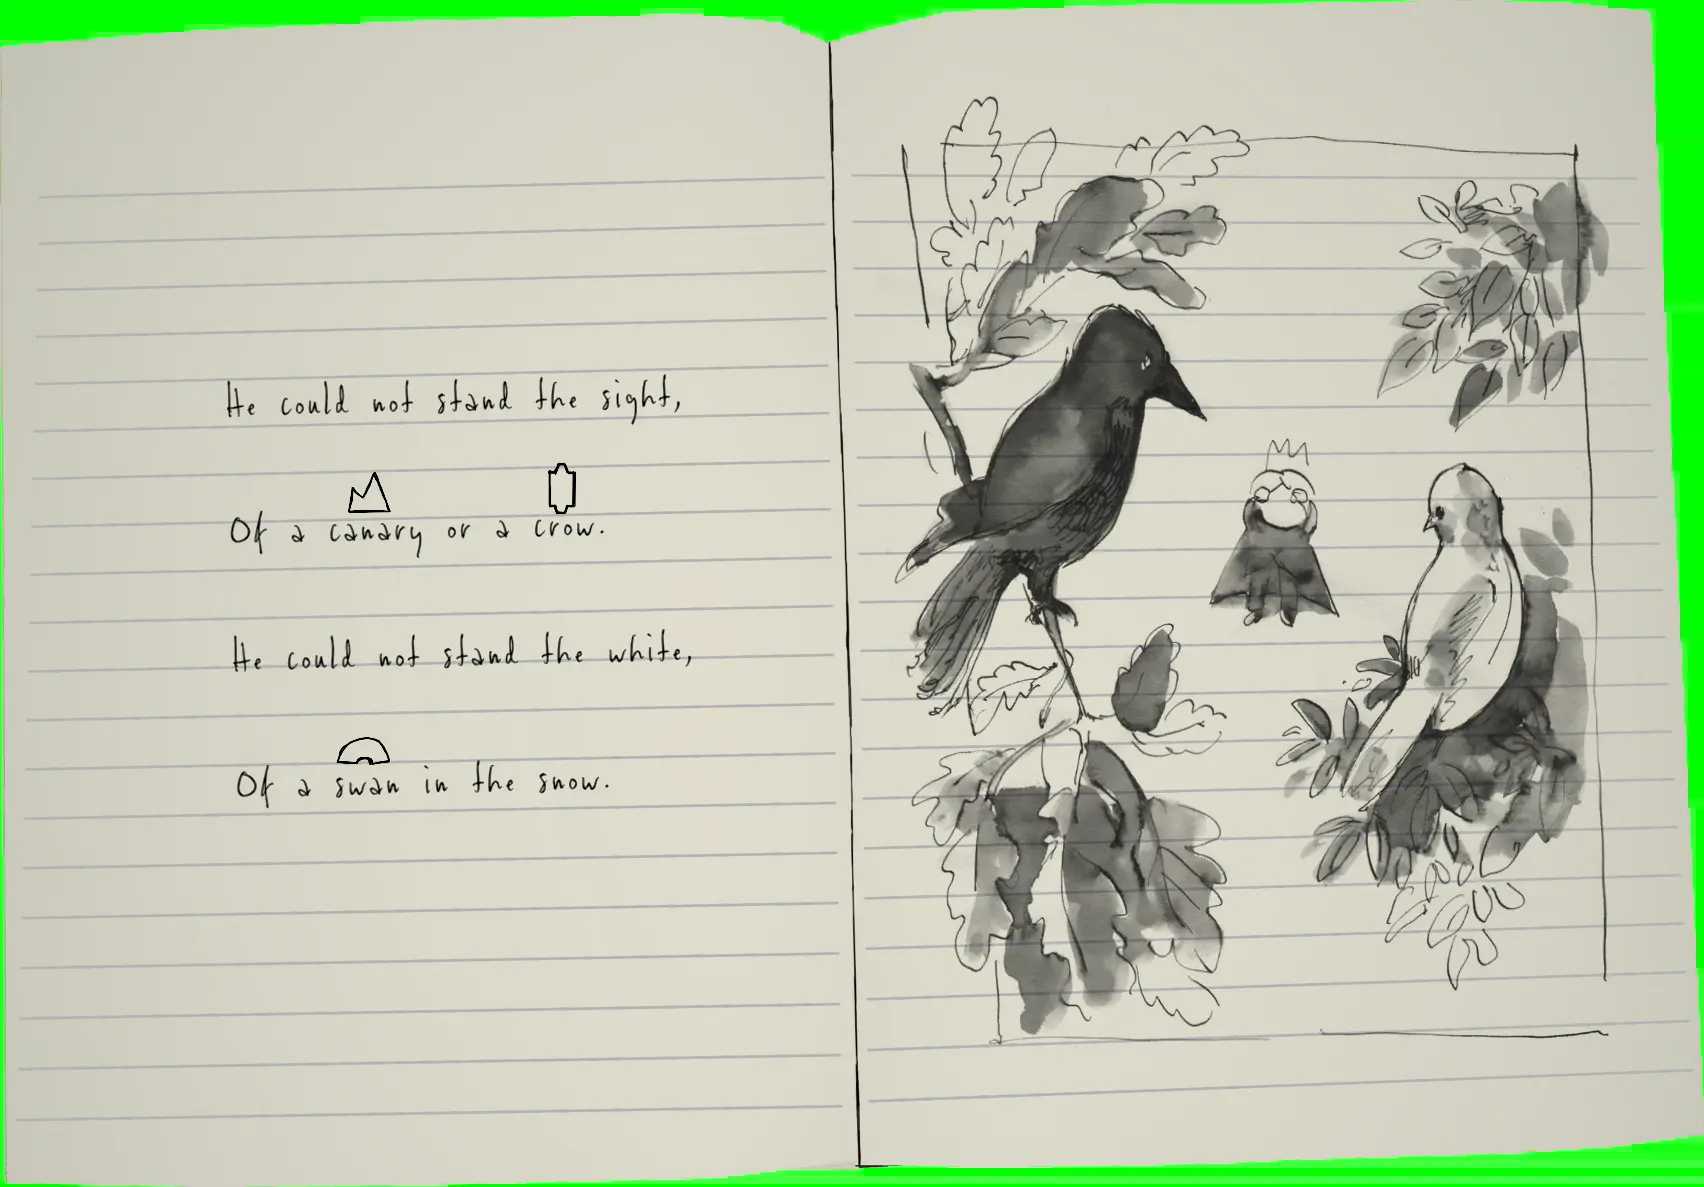 He could not stand the sight,
Of a canary or a crow.
He could not stand the white,
Of a swan in the snow.